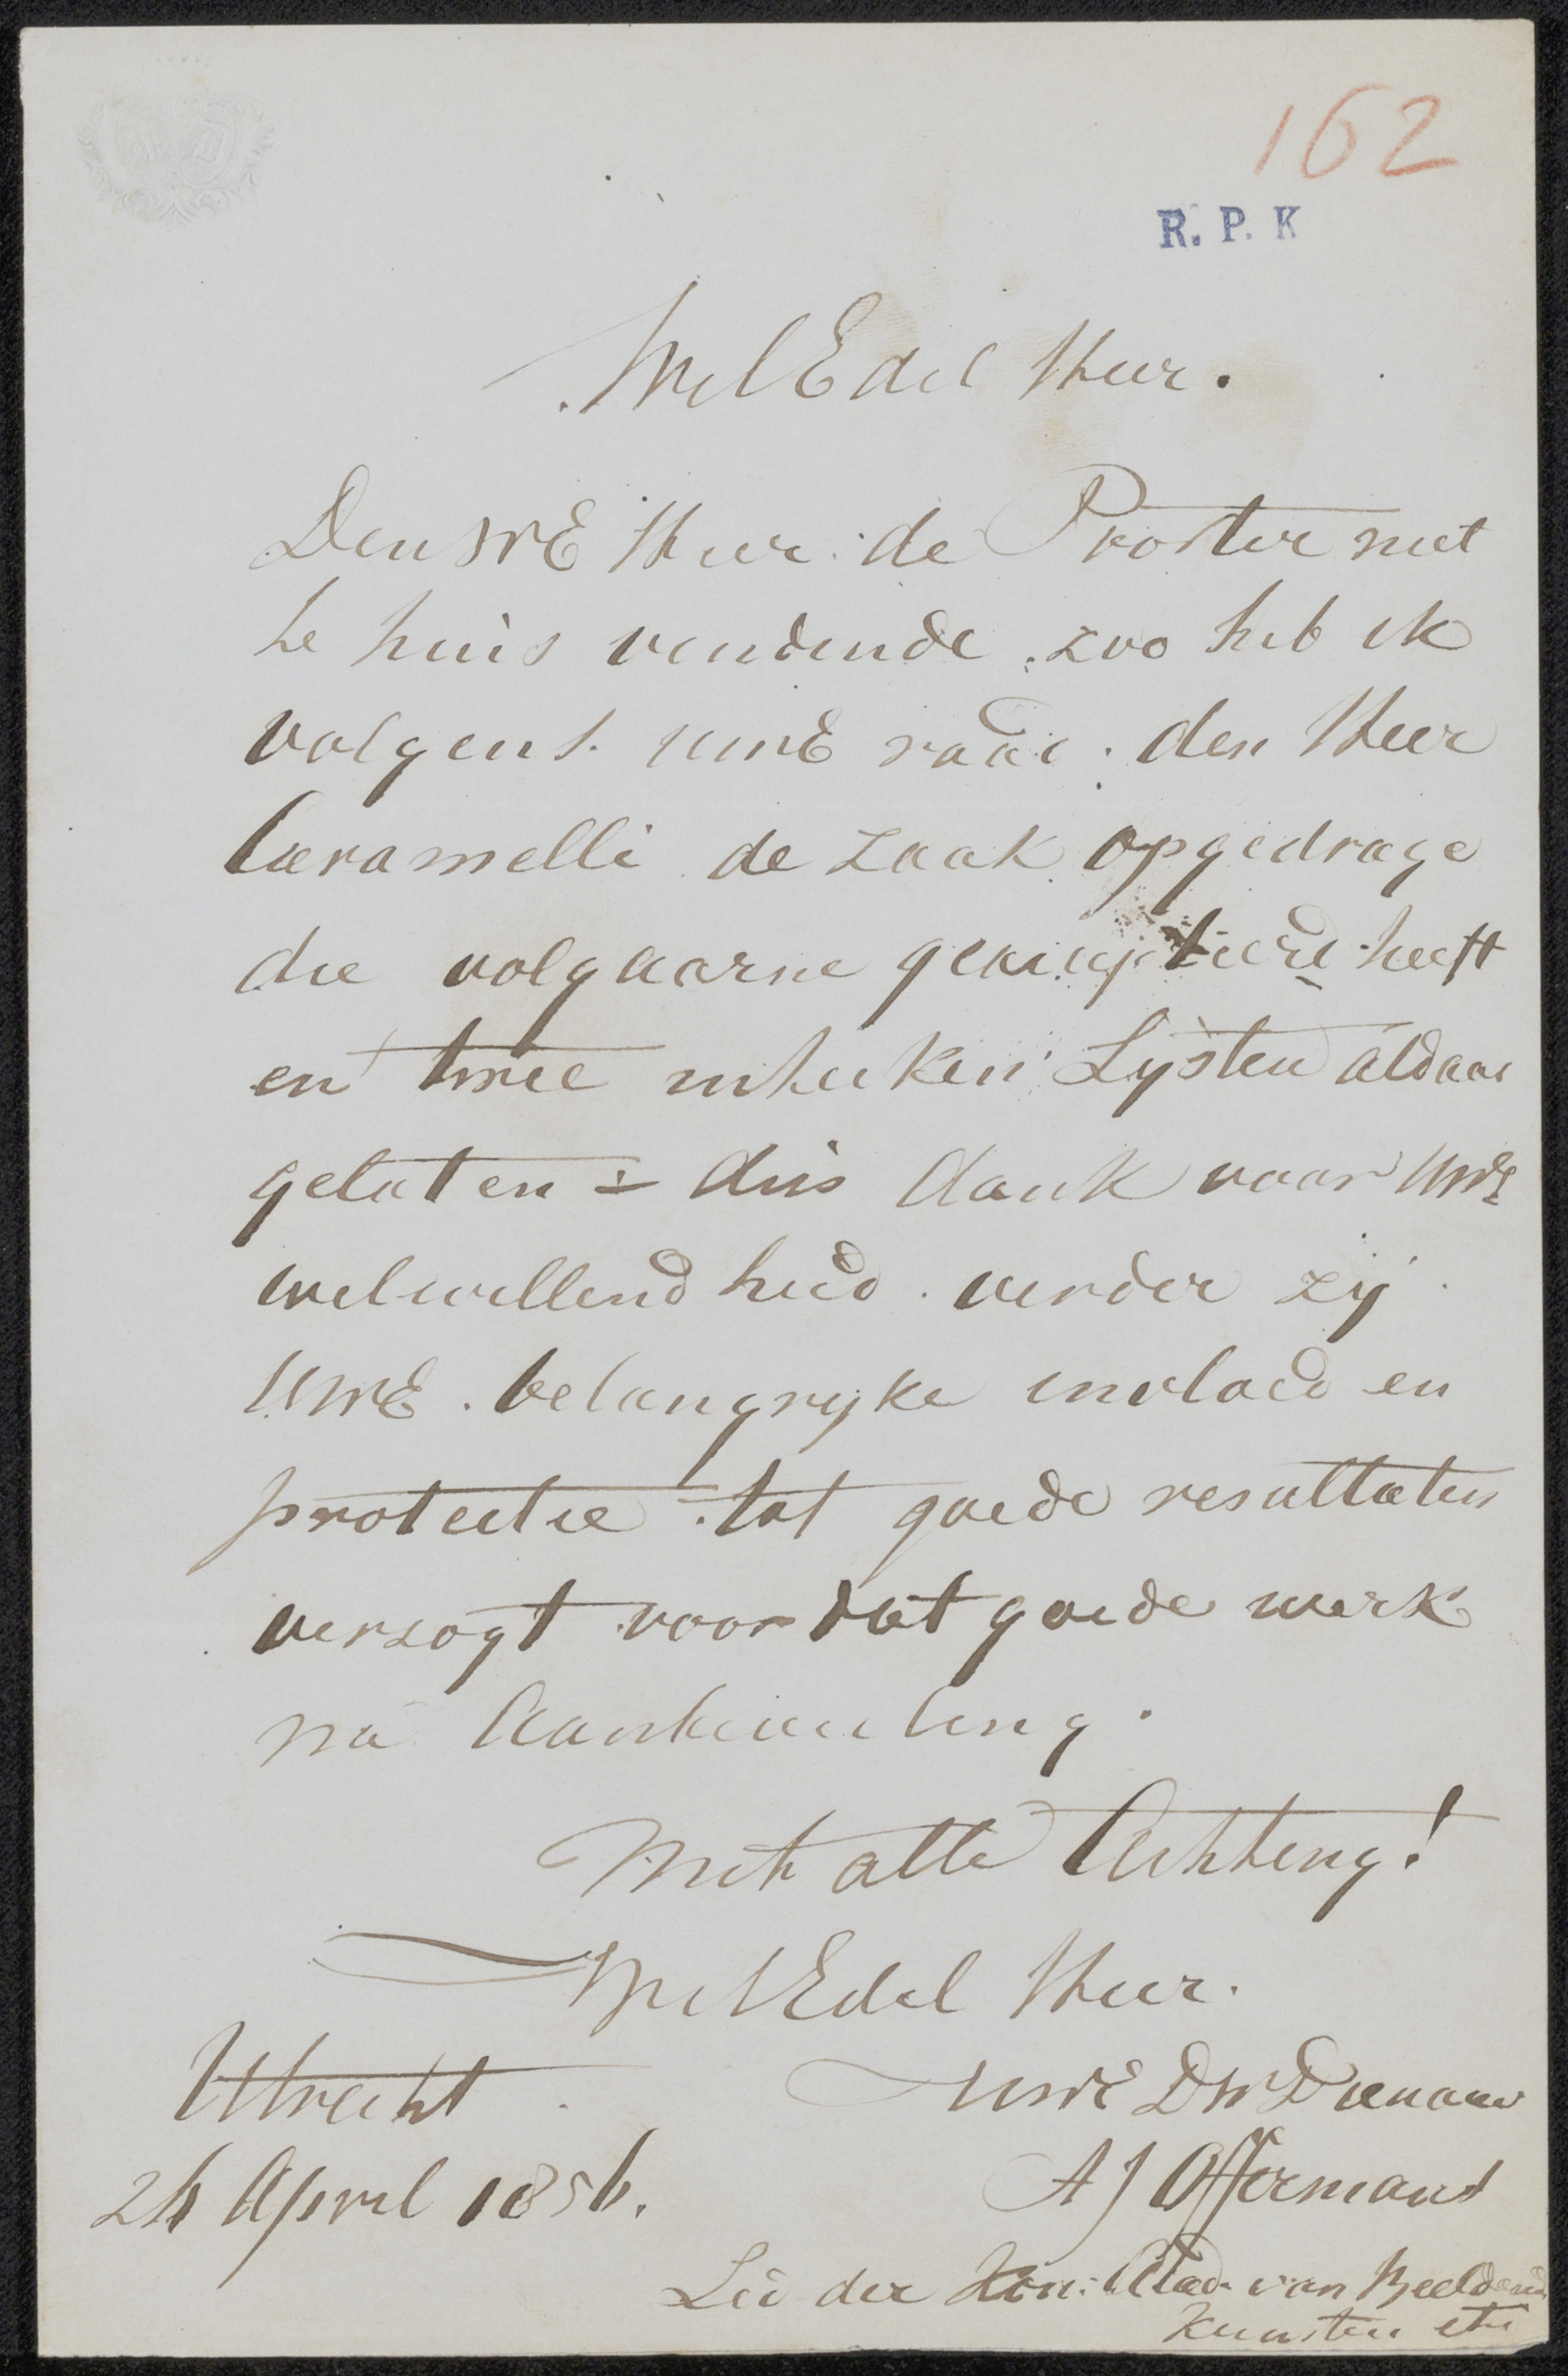 162
R. P. K
WelEdel Heer.
Den WE Heer de Proster niet
te huis vindende. zoo heb ik
volgens UwE raad. den Heer
Caramelli de zaak opgedrage
die volgaarne geaccepteerd heeft
en twee inteeken Lysten aldaar
gelaten = dus dank voor UwE
welwillendheid. verder zij
UWE. belangryke invloed en
protectie tot goede resultaten
verzogt voor dat goede werk
na Aanbeveling.
Met alle Achting!
WelEdel Heer.
Utrecht
UwE DW Dienaar
26 April 1856.
A J Offermans
Lid der Kon: Acad. van Beeldende
Kunsten etc